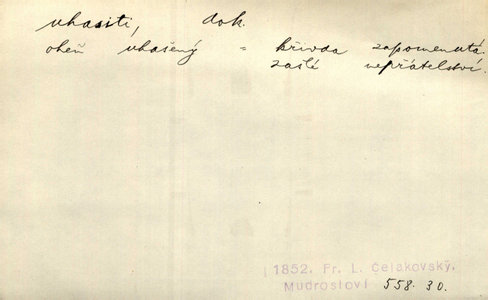 uhasiti, dok.
oheň uhašený = křivda zapomenutá.
zašlé nepřátelství.
1852. Fr. L. Čelakovský,
Mudrosloví 558. 30.